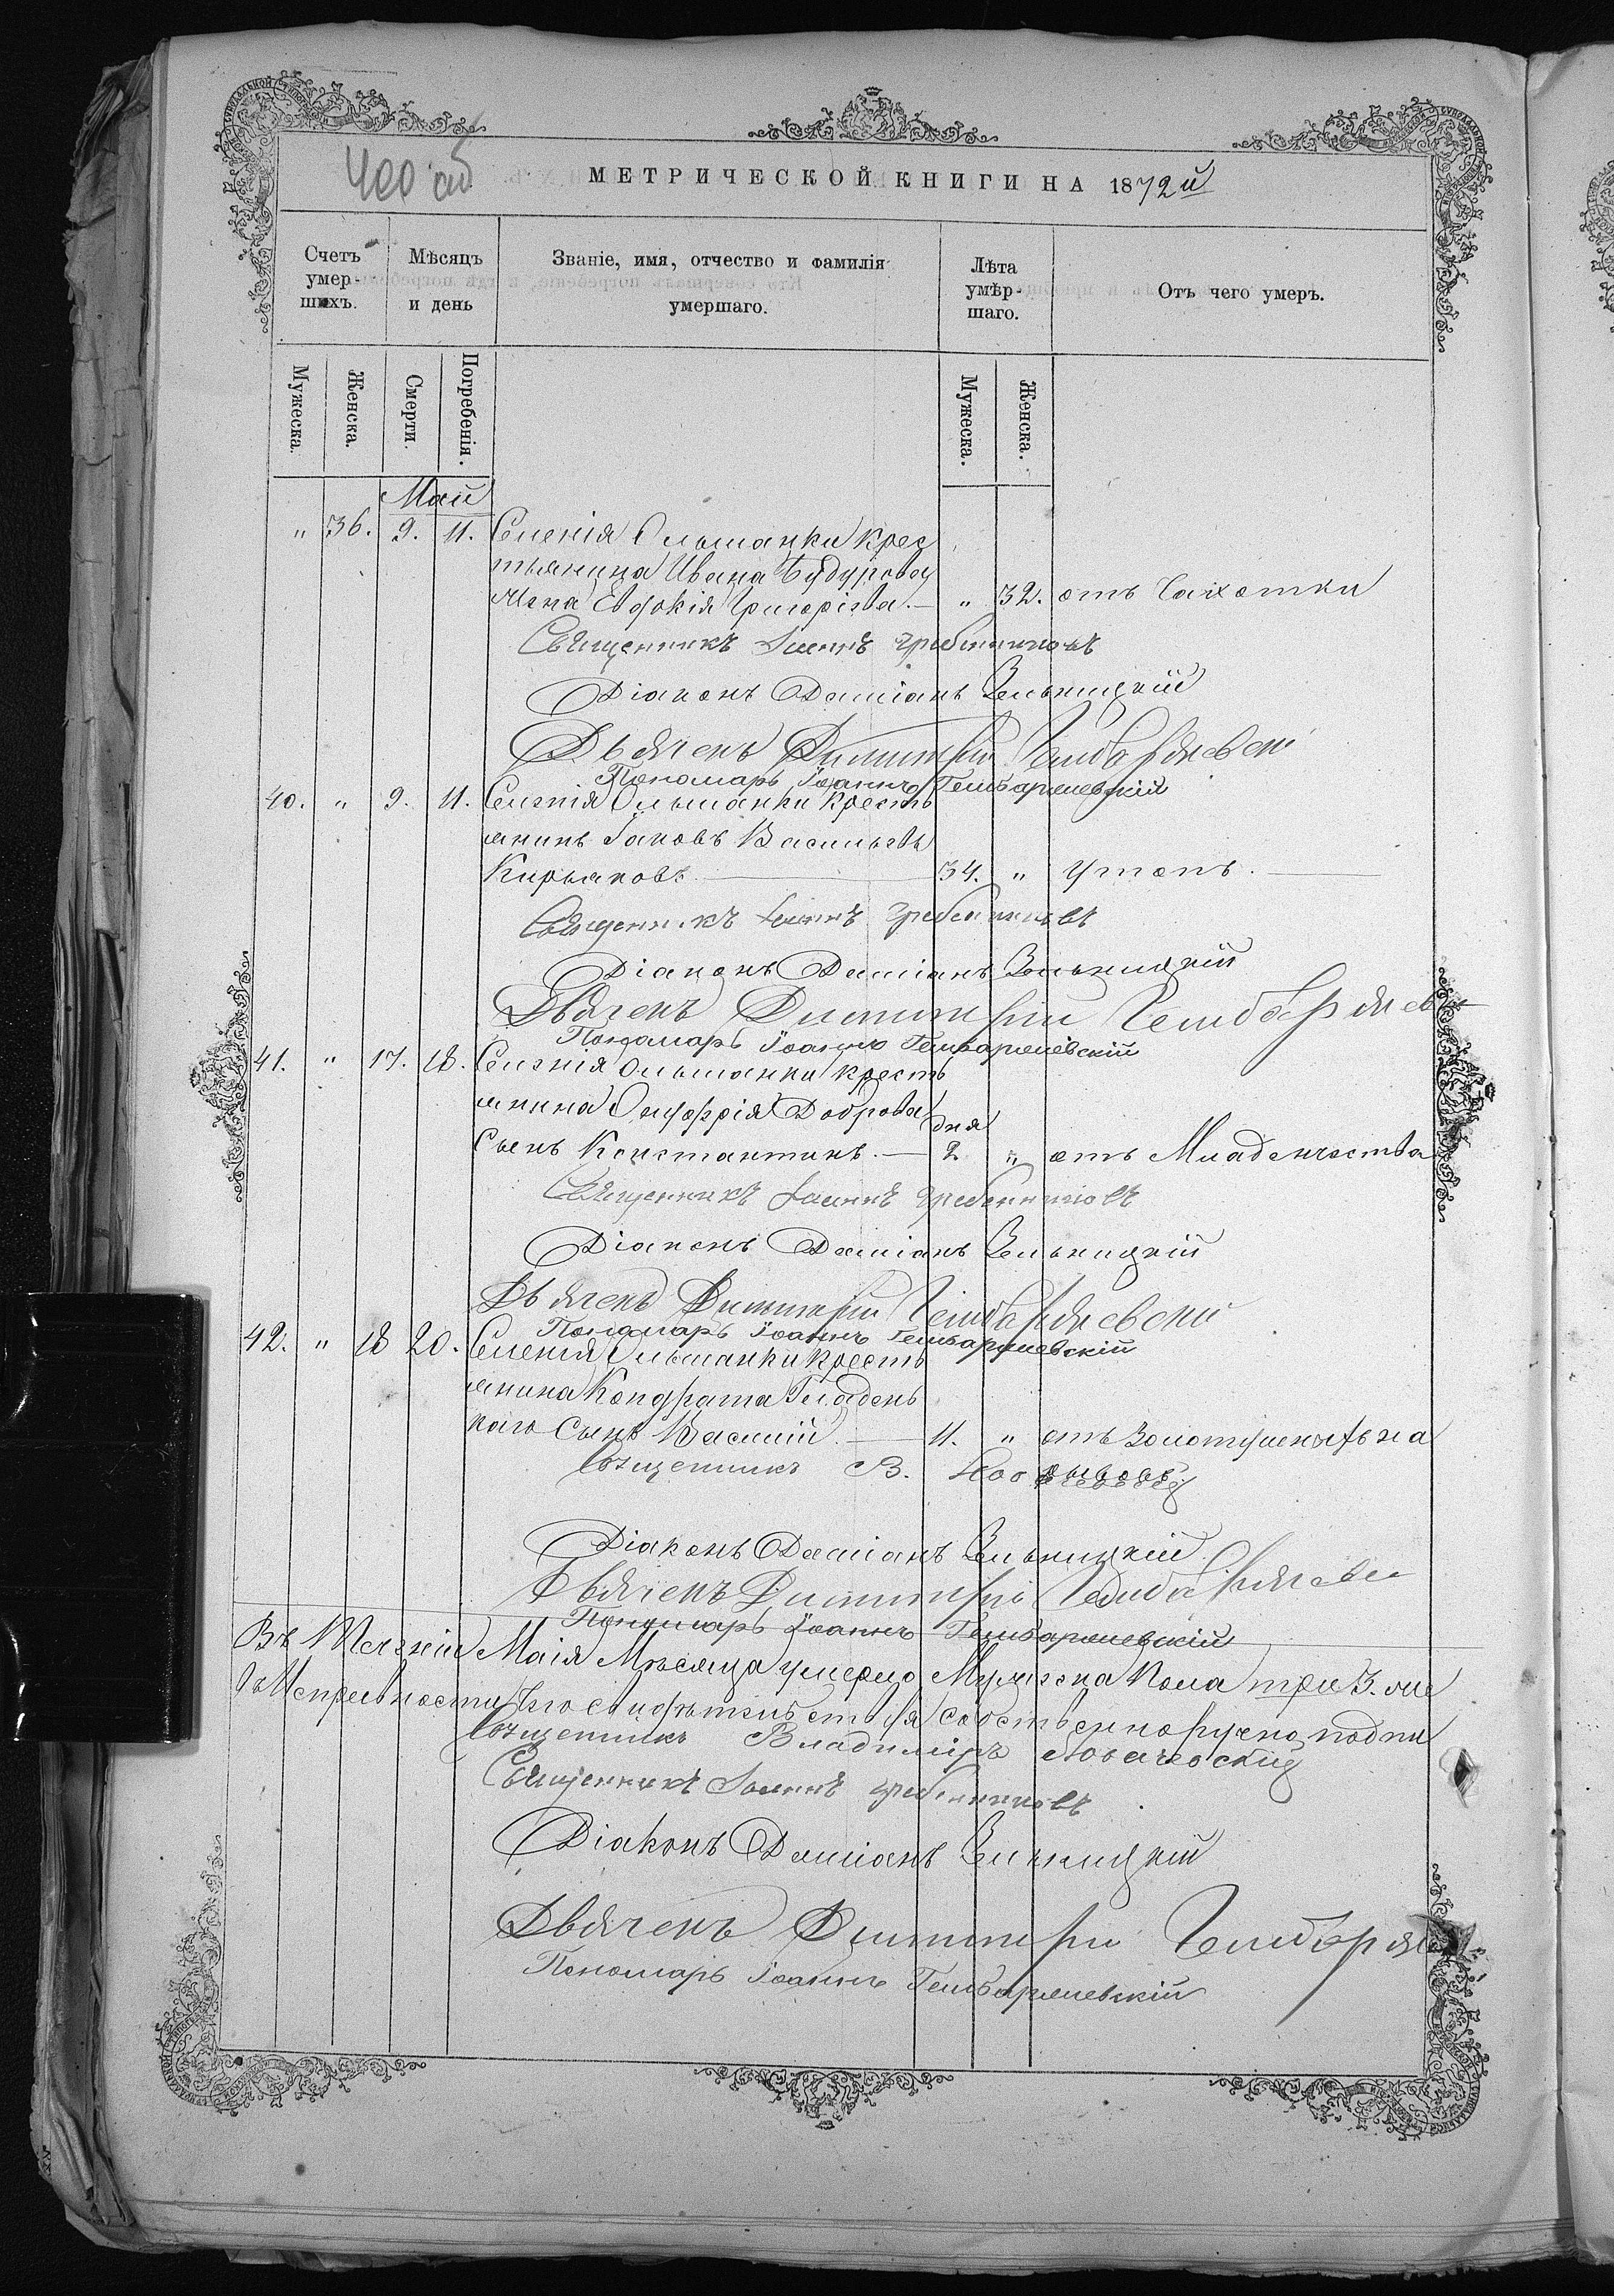 400 об
МЕТРИЧЕСКОЙ КНИГИ НА 1872й
Счетъ умер-шихъ.
Мѣсяцъ и день
Званіе, имя, отчество и фамилія умершаго.
Лѣта умѣр-шаго.
Отъ чего умеръ.
Мужеска.
Женска.
Смерти.
Погребенія.
Мужеска.
Женска.
Май
" 36. 9. 11. Селенія Ольшанки крес
тьянина Ивана Будурова
жена Евдокія Григоріева. — " 32. отъ Чахотки
Священникъ Іоаннъ Гребинниковъ
Діаконъ Даміанъ Зельницкій
Дьячекъ Димитрій
Пономарь Іоаннъ Гембаржевскій
40. " 9. 11. Селенія Ольшанки кресть
янинъ Іаковъ Васильевъ
Кирьяковъ. — 34. " Утопъ.
Священникъ Іоаннъ Гребинниковъ
Діаконъ Даміанъ Зельницкій
Дьячекъ Димитрій
Пономарь Іоаннъ Гембаржевскій
41. " 17. 18. Селенія Ольшанки кресть
янина Онуфрія Доброва дня
Сынъ Константинъ. — 2 " отъ Младенчества
Священникъ Іоаннъ Гребинниковъ
Діаконъ Даміанъ Зельницкій
Дьячекъ Димитрій
Пономарь Іоаннъ Гембаржевскій
42. " 18 20. Селенія Ольшанки кресть
янина Кондрата Гладень
каго Сынъ Василій. — 11. " отъ
Священникъ В.
Діаконъ Даміанъ Зельницкій
Дьячекъ Димитрій
Пономарь Іоаннъ Гембаржевскій
Въ Теченіи Маія Мѣсяца умерло Мужеска Пола три 3.
свидѣтельствуя собственноручно подпи
Священникъ Владиміръ
Священникъ Іоаннъ Гребинниковъ
Діаконъ Даміанъ Зельницкій
Дьячекъ Димитрій
Пономарь Іоаннъ Гембаржевскій